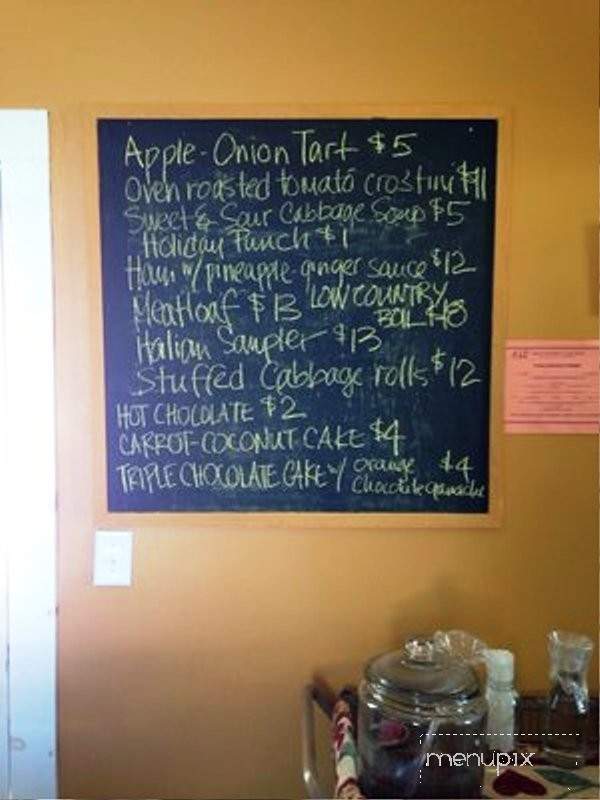 Apple-Onion Tart $5
Oven roasted tomato crostini $11
Sweet & Sour Cabbage Soup $5
Holiday Punch $1
Ham w/ pineapple ginger sauce $12
Meatloaf $13
LOW COUNTRY
BOIL $18
Italian Sampler $13
Stuffed Cabbage rolls $12
HOT CHOCOLATE $2
CARROT-COCONUT CAKE $4
TRIPLE CHOCOLATE CAKE w/ orange $4
chocolate ganache
menupix